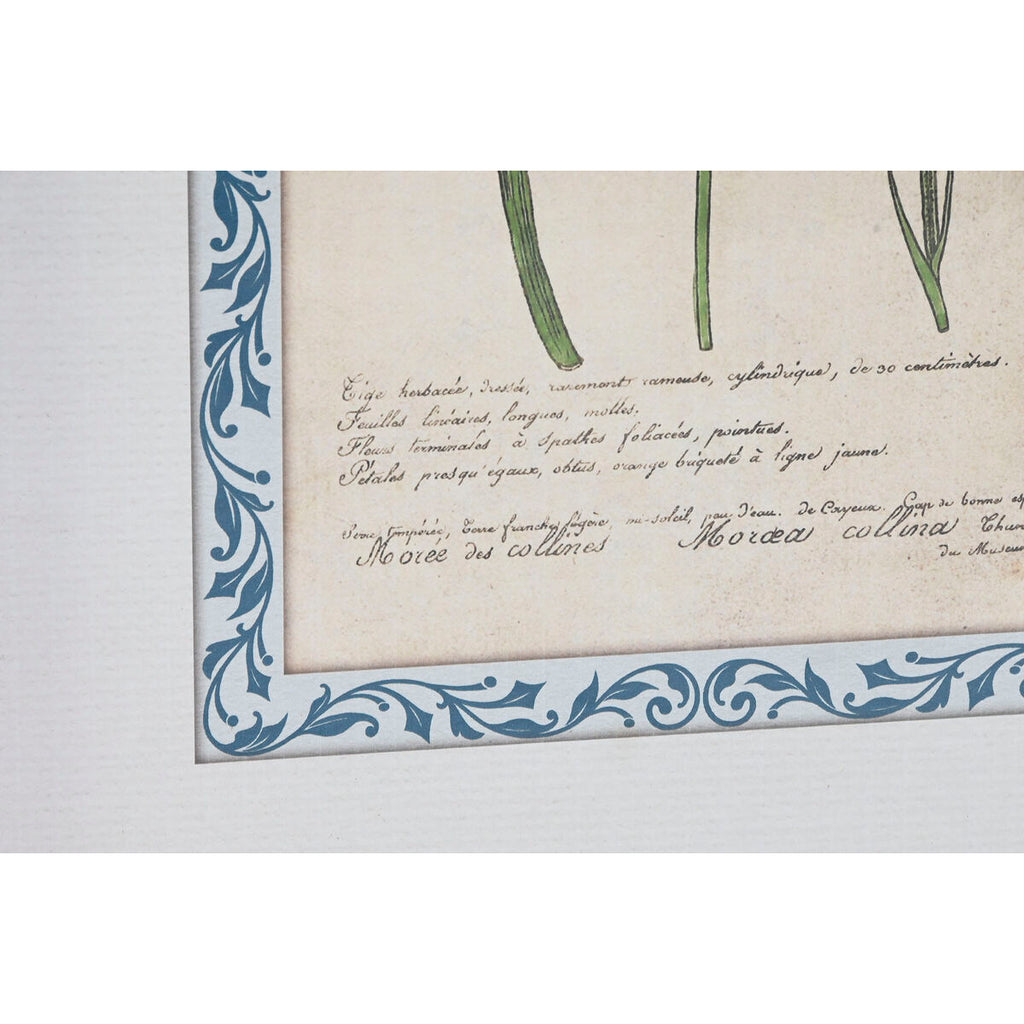 Tige herbacée, dressée, rarement rameuse, cylindrique, de 30 centimètres.
Feuilles linéaires, longues, molles.
Fleurs terminales à spathes foliacées, pointues.
Pétales presqu'égaux, obtus, orange briqueté à ligne jaune.
Serre tempérée, Terre franche, légère, mi-soleil, peu d'eau. de Cayeux. Cap de bonne esp
Morée des collines Moræa collina Thun
du Museum